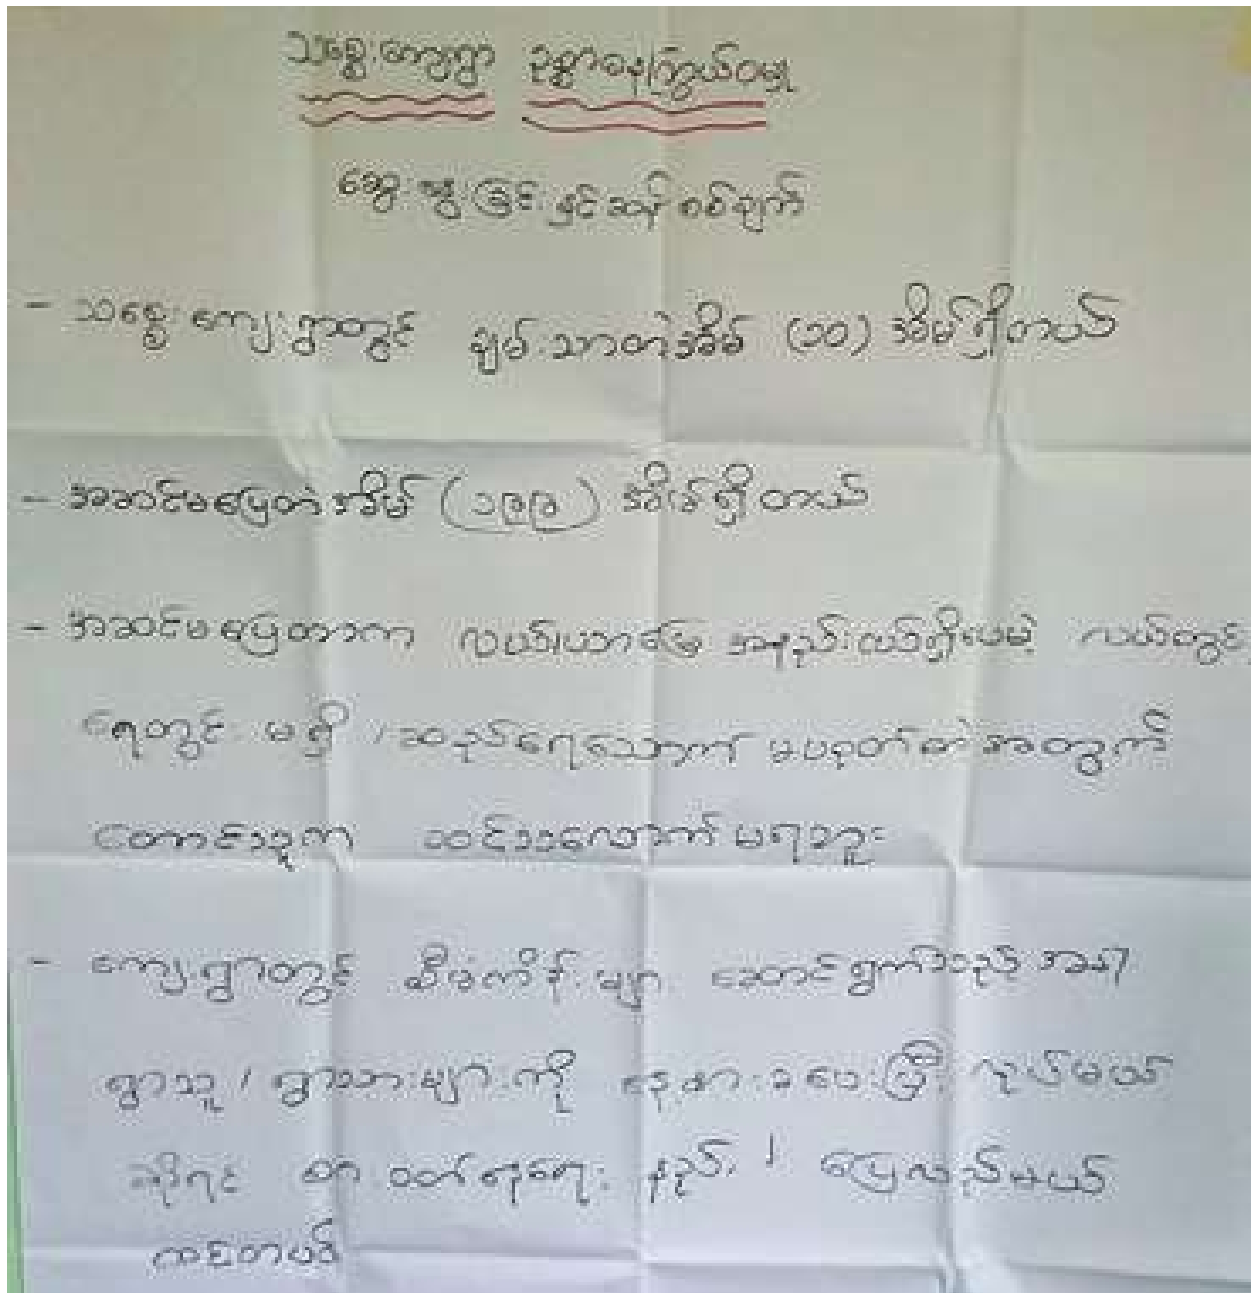 သစ္စေးကျေးရွာ ဥစ္စာဓနကြွယ်ဝမှု
ဆွေးနွေးခြင်းနှင့်ဆန်းစစ်ချက်
- သစ္စေးကျေးရွာတွင် ချမ်းသာတဲ့အိမ် (၁၀) အိမ်ရှိတယ်
- အဆင်မပြေတဲ့အိမ် (၁၉၉) အိမ်ရှိတယ်
- အဆင်မပြေတာက လယ်ယာမြေ အနည်းငယ်ရှိပေမဲ့ လယ်တွင်း
ရေတွင်းမရှိ / ဆည်ရေသောက် မဟုတ်တဲ့အတွက်
တောင်သူက ဝင်သလောက်မရဘူး
- ကျေးရွာတွင် စီမံကိန်းများ ဆောင်ရွက်သည့်အခါ
ရွာသူ / ရွာသားများကို နေ့စားခပေးပြီး လုပ်မယ်
ဆိုရင် စားဝတ်နေရေး နည်း ပြေလည်မယ်
ထင်တယ်